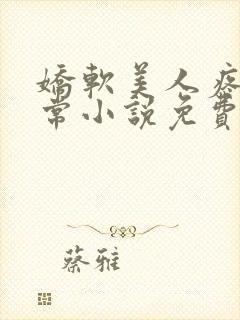 嬌軟美人
常小說免費
蔡雅